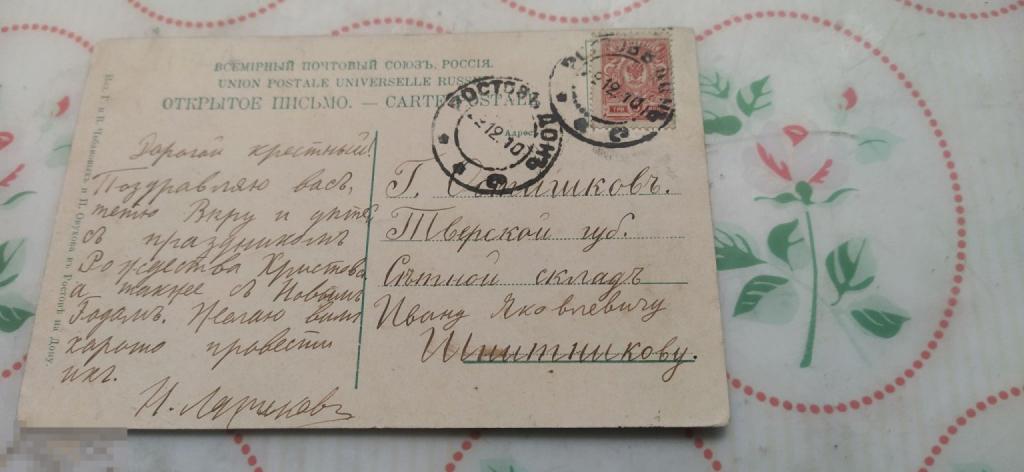 ВСЕМІРНЫЙ ПОЧТОВЫЙ СОЮЗЪ. РОССІЯ.
UNION POSTALE UNIVERSELLE RUSSIE
ОТКРЫТОЕ ПИСЬМО. — CARTE POSTALE
Адресъ
РОСТОВЪ ДОНЪ
12.10
РОСТОВЪ ДОНЪ
12.10
ТРИ
Дорогой крестный!
Поздравляю васъ,
тетю Вѣру и дѣтей
съ праздникомъ
Рождества Христова
а также съ Новымъ
Годомъ. Желаю вамъ
хорошо провести
ихъ.
Г. Осташковъ.
Тверской губ.
Сѣтной складъ
Ивану Яковлевичу
въ Ростовѣ на Дону.